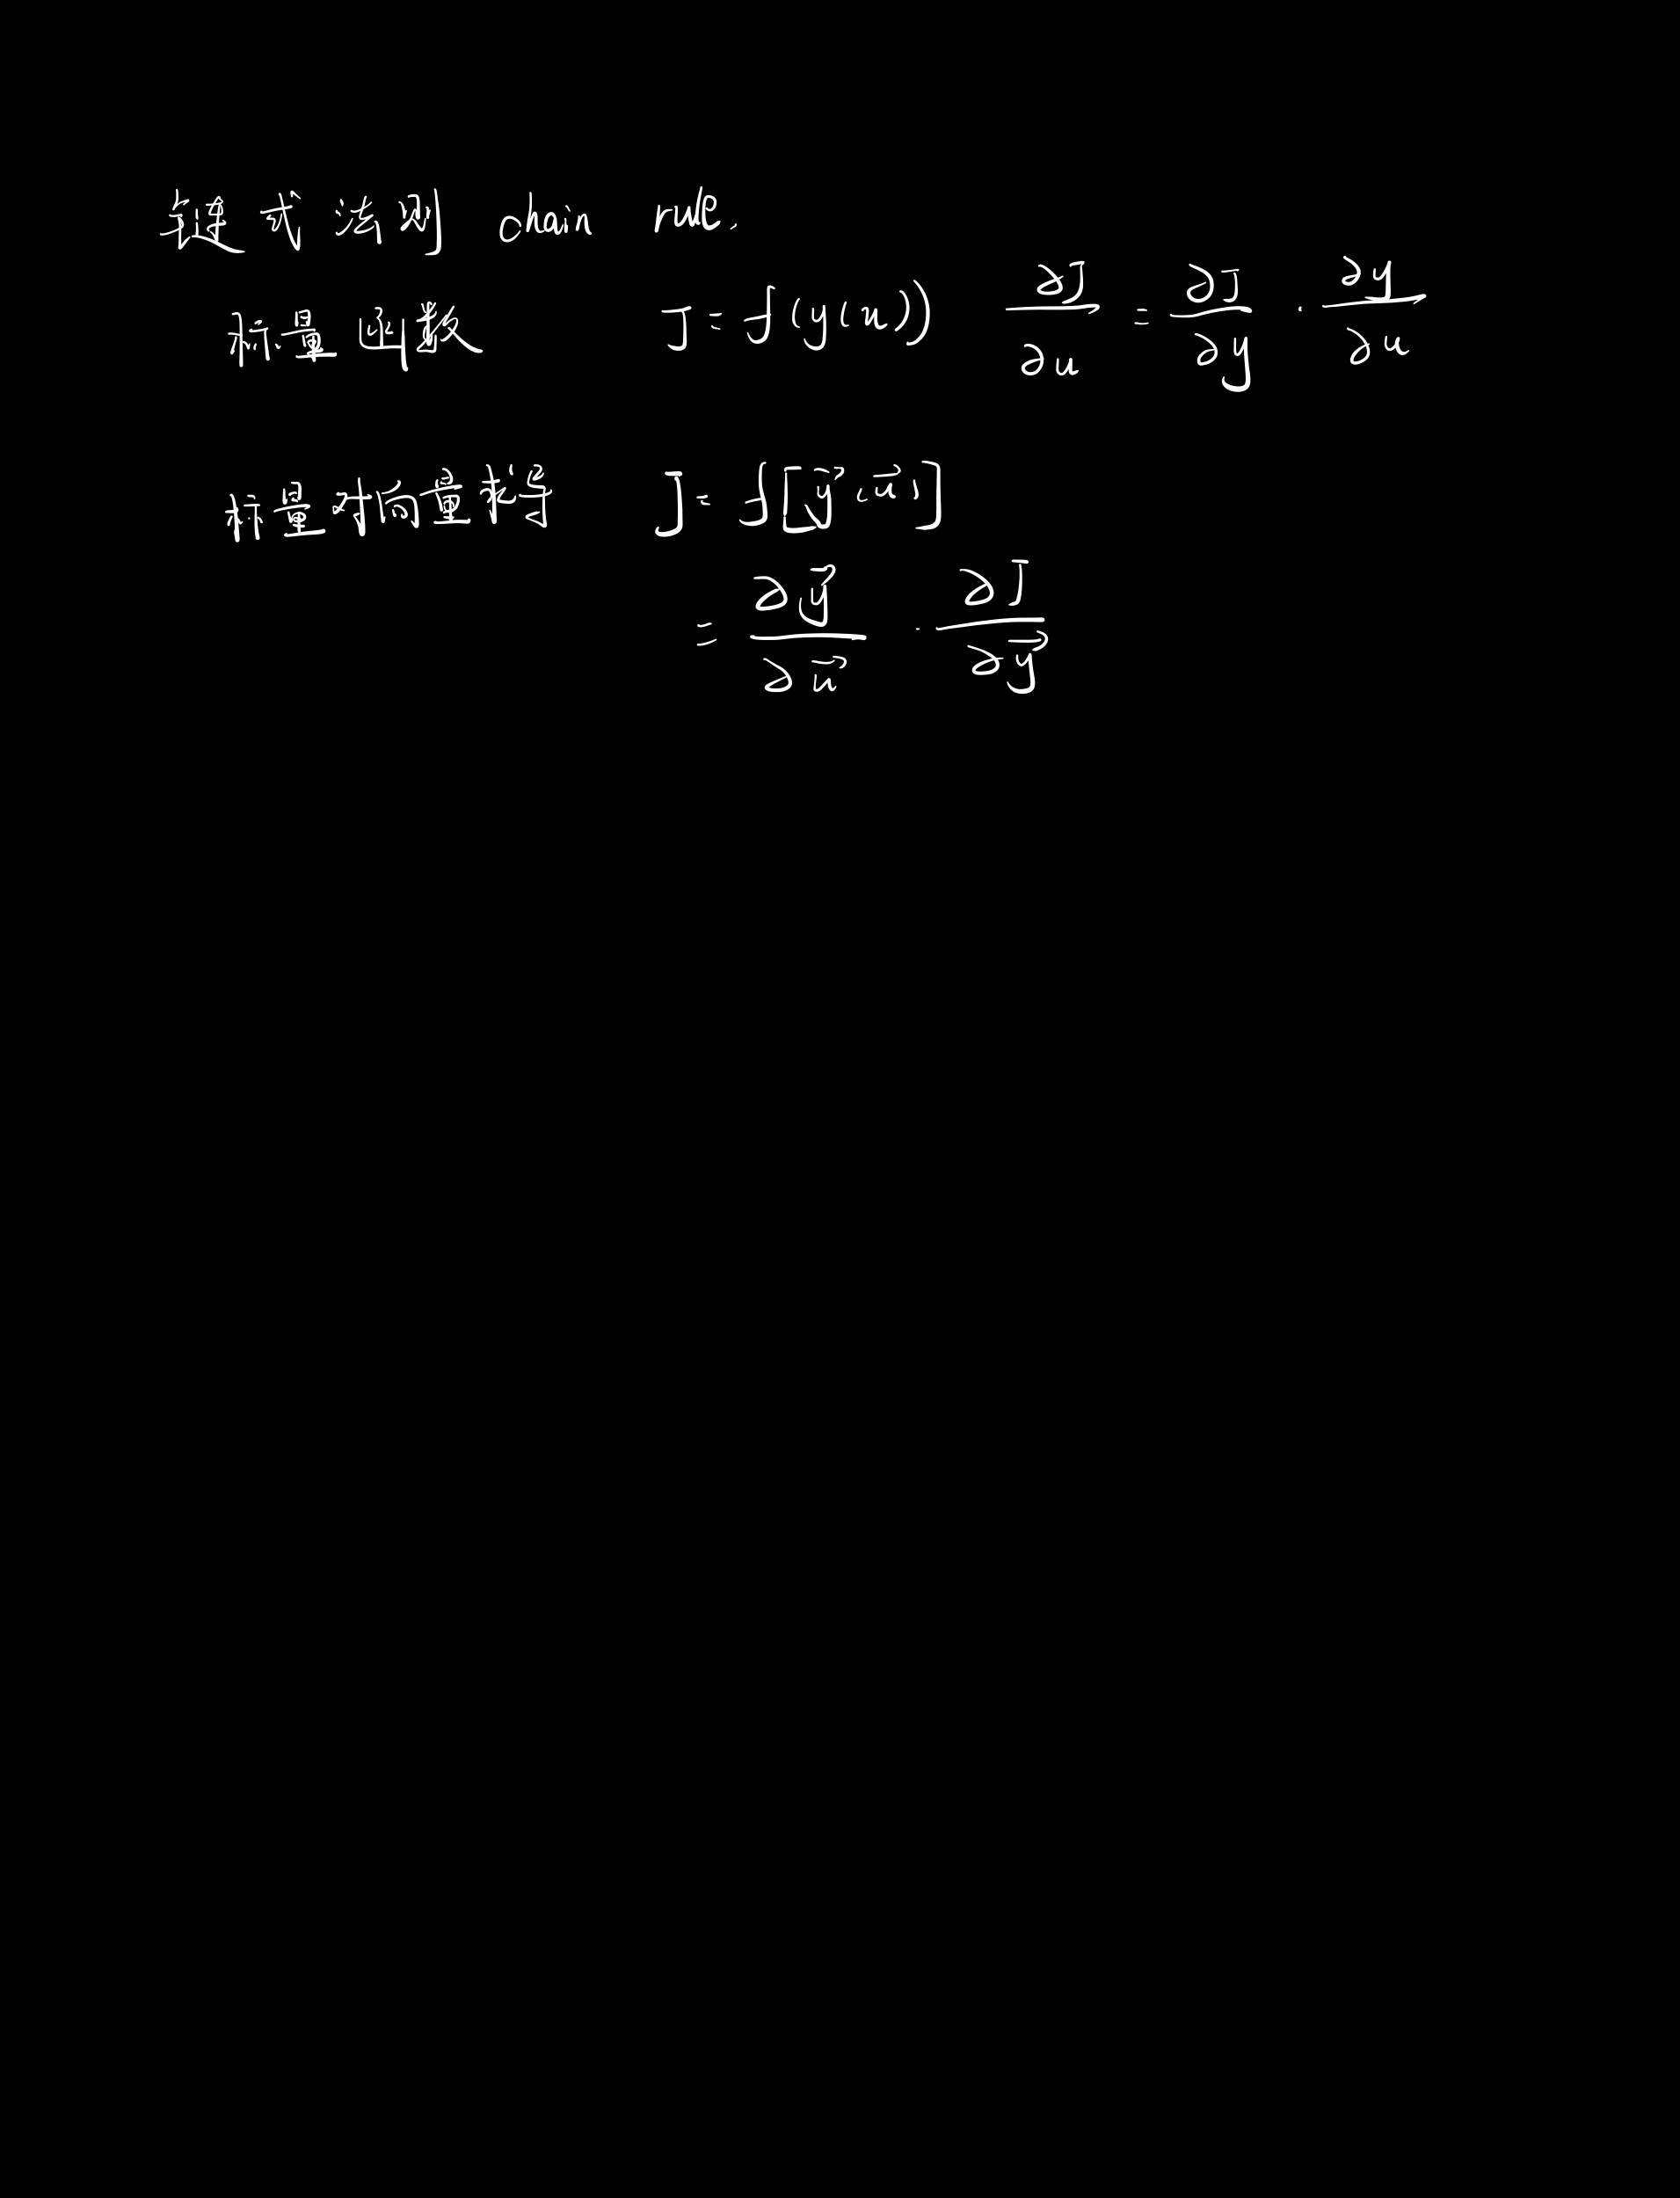 链式法则 chain rule.
标量函数 J = f(y(u)) ∂J/∂u = ∂J/∂y · ∂y/∂u
标量对向量求导 J = f[y⃗(u⃗)]
= ∂y⃗/∂u⃗ · ∂J/∂y⃗